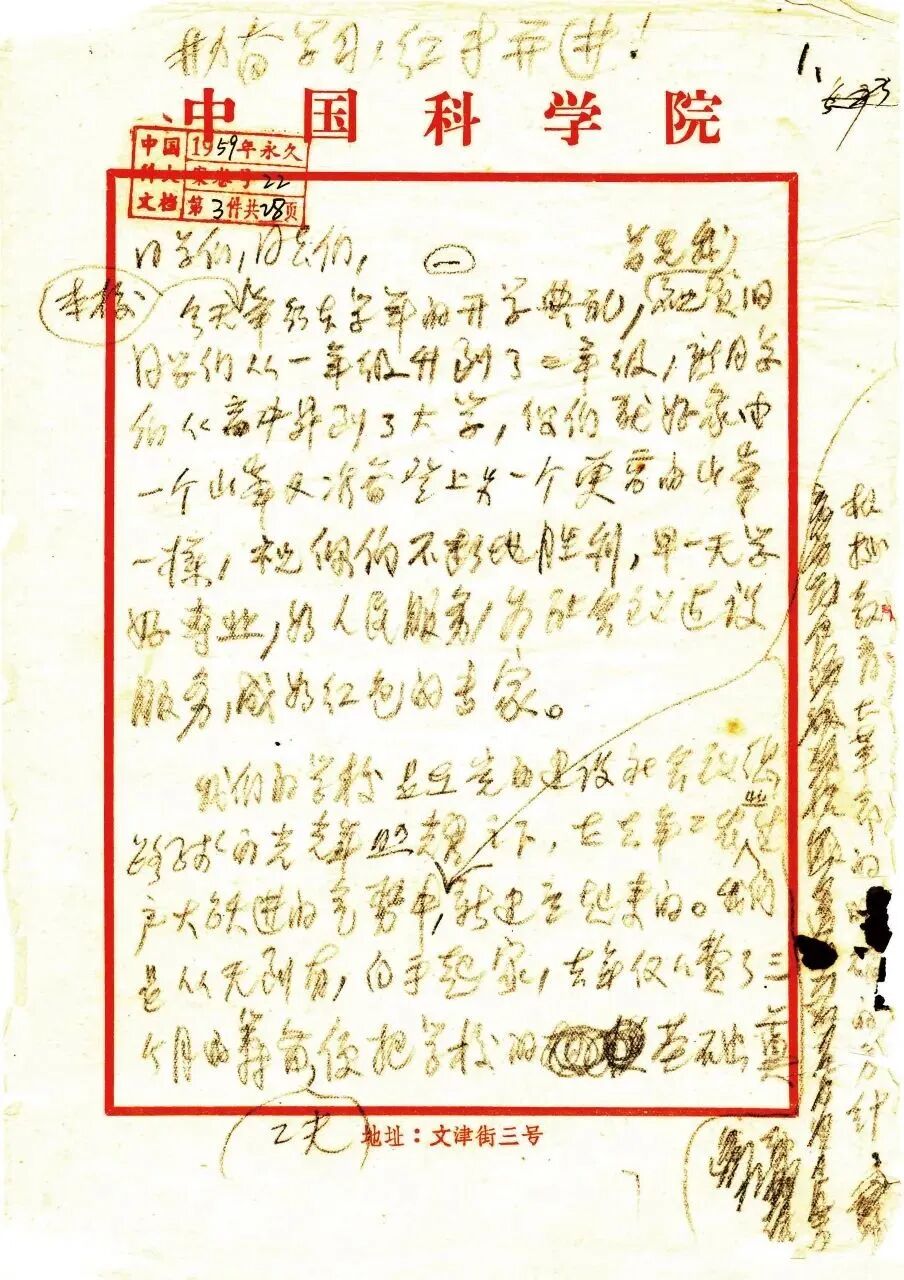 奋学习，红专并进！
1、
中国科学院
中国科大文档
1959年永久
案卷号22
第3件共28页
同学们，同志们，
（一）
首先我
本校
今天举行本学年的开学典礼，祝贺旧
同学们从一年级升到了二年级，新同学
们从高中升到了大学，你们就好象由
一个山峰又准备登上另一个更高的山峰
一样，祝你们不断地胜利，早一天学
好专业，为人民服务，为社会主义建设
服务，成为红色的专家。
我们的学校是在党的建设社会主义总
路线的光辉照耀之下，在去年工农业生
产大跃进的气势中，新建立起来的。我们
是从无到有，白手起家，去年仅仅费了三
个月的筹备便把学校的基础奠
工夫
根据教育与
的方针
地址：文津街三号